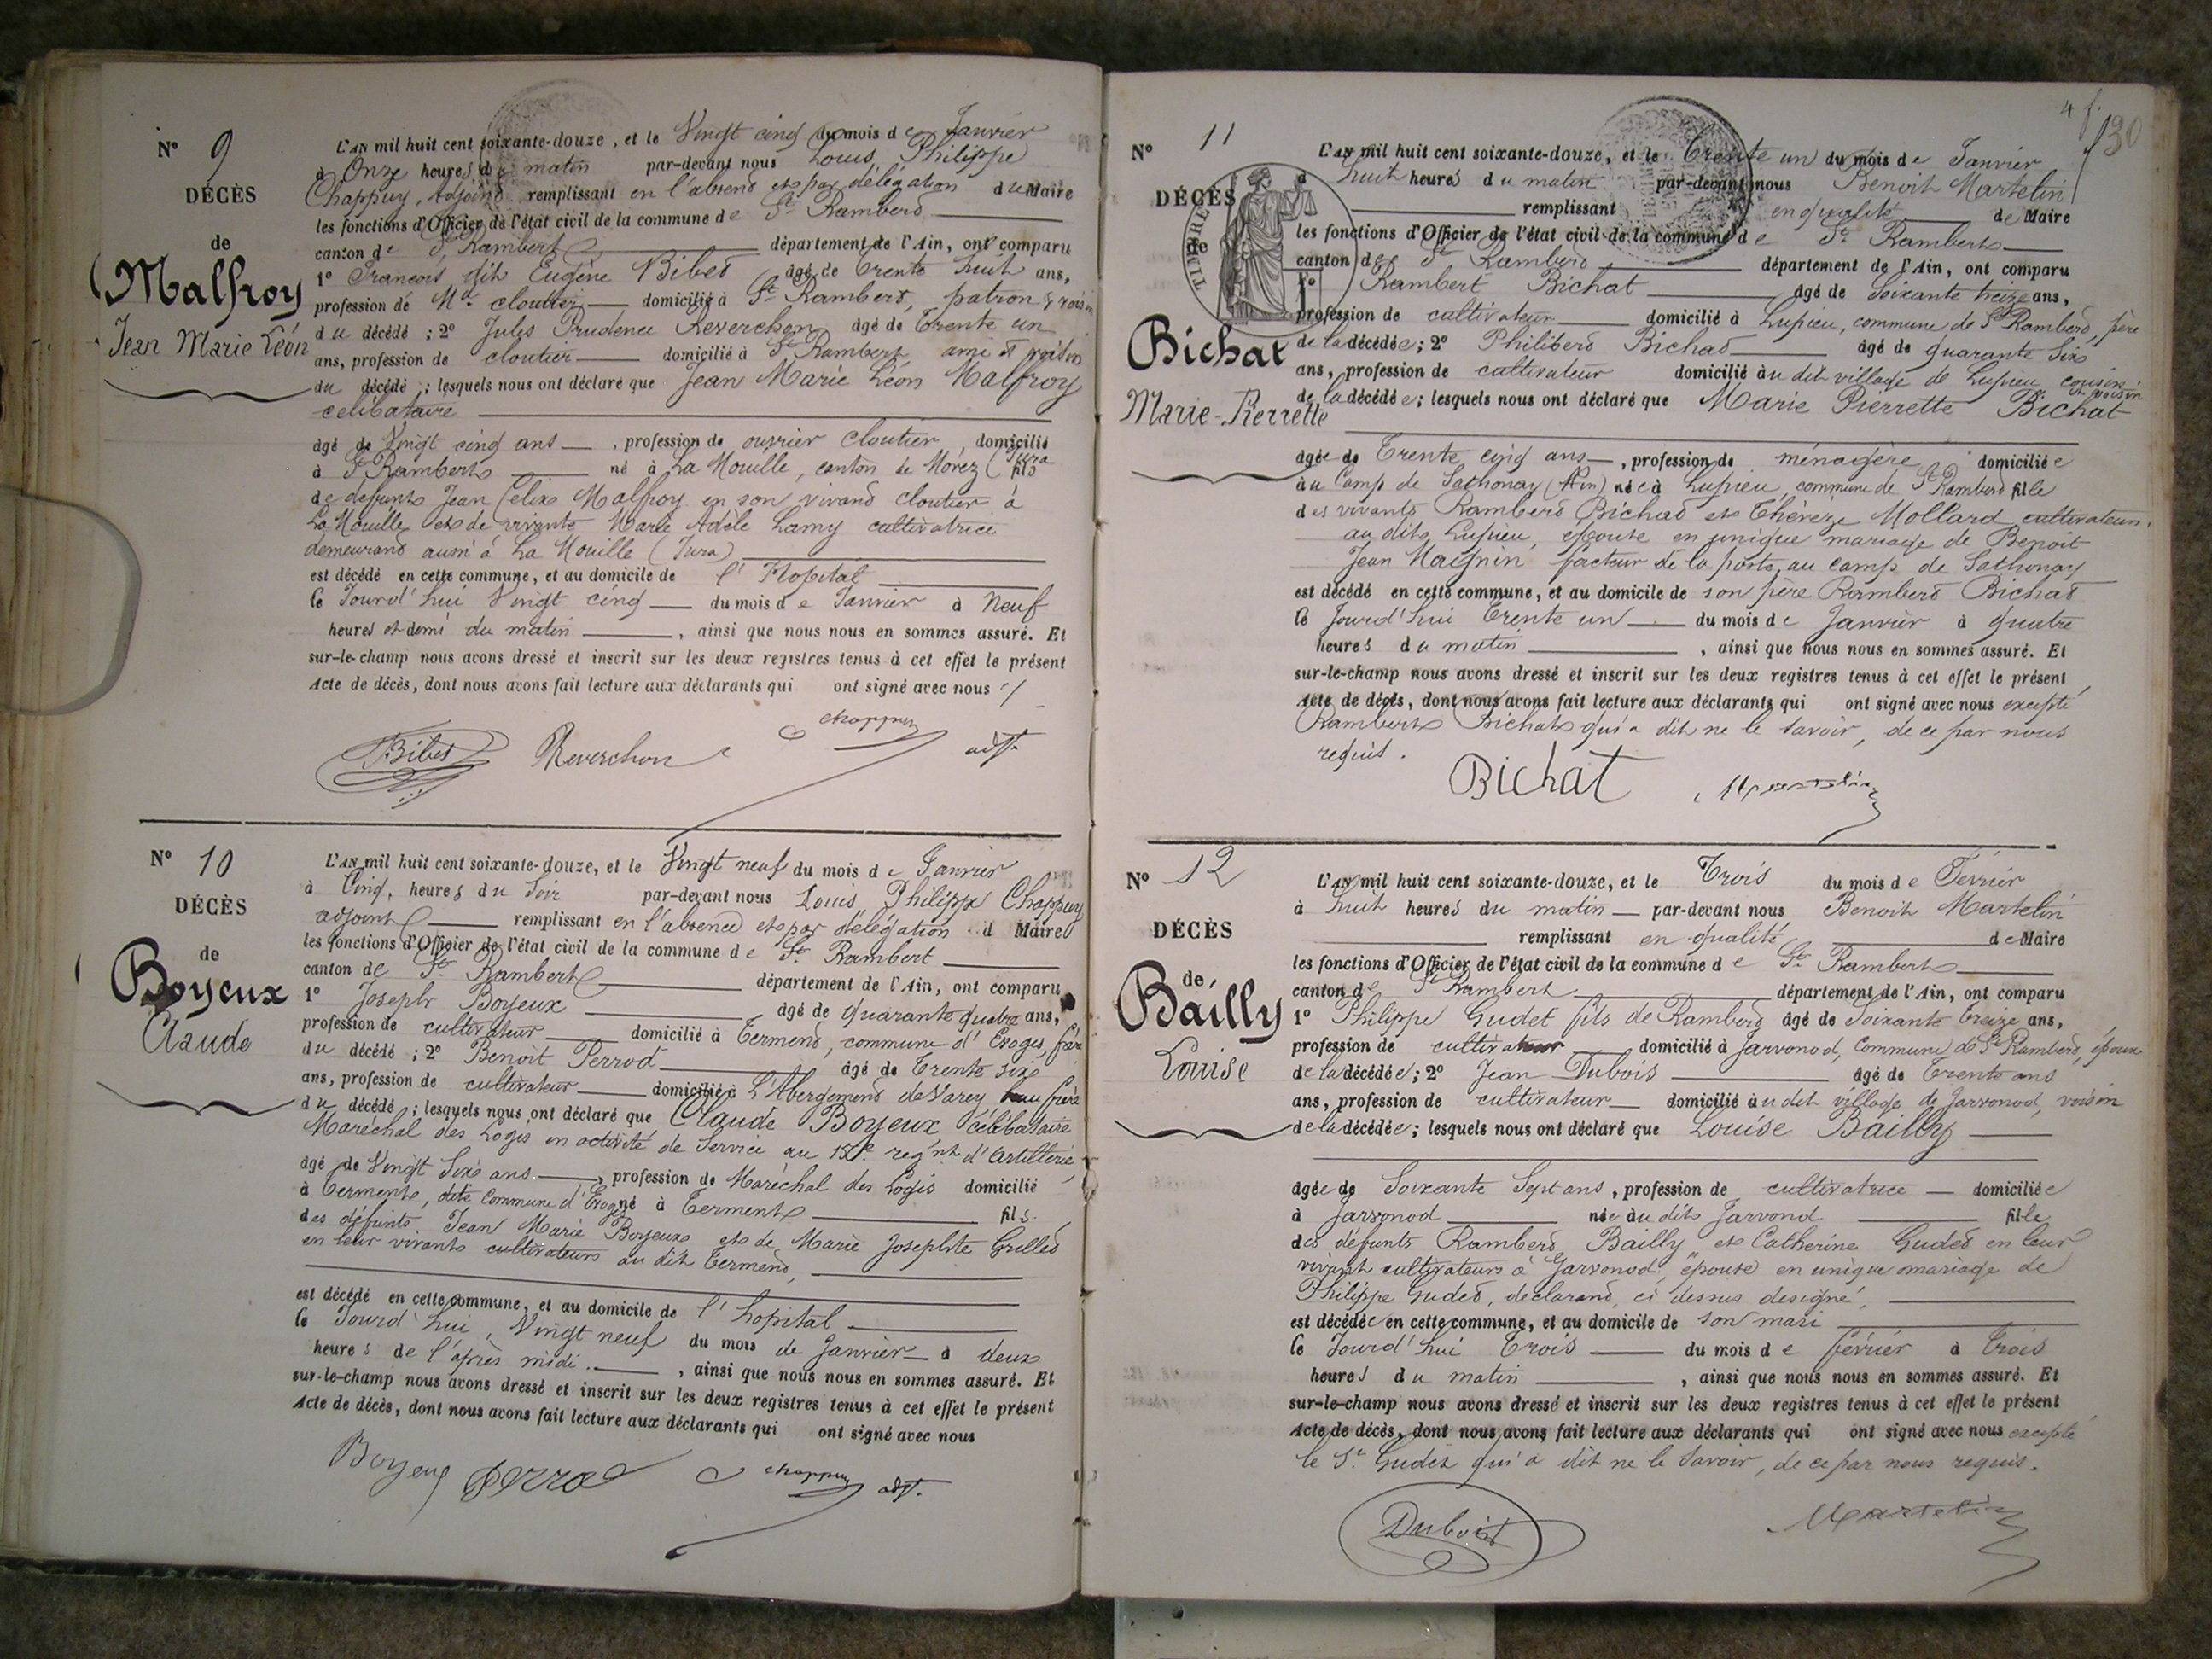 N° 9
DÉCÈS
de
Malfroy
Jean Marie Léon
L'AN mil huit cent soixante-douze, et le Vingt cinq du mois de Janvier
à Onze heures du matin par-devant nous Louis Philippe
Chappuy, Adjoint remplissant en l'absence et par délégation du Maire
les fonctions d'Officier de l'état civil de la commune de St Rambert
canton de St Rambert département de l'Ain, ont comparu
1° François dit Eugène Bibet âgé de trente huit ans,
profession de Md cloutier domicilié à St Rambert, patron & voisin
du décédé ; 2° Jules Prudence Reverchon âgé de Trente un
ans, profession de cloutier domicilié à St Rambert ami et voisin
du décédé ; lesquels nous ont déclaré que Jean Marie Léon Malfroy
célibataire
âgé de Vingt cinq ans, profession de ouvrier cloutier domicilié
à St Rambert né à La Mouille, canton de Morez (Jura) fils
de défunt Jean Félix Malfroy en son vivant cloutier à
La Mouille et de vivante Marie Adèle Lamy cultivatrice
demeurant aussi à La Mouille (Jura)
est décédé en cette commune, et au domicile de l'Hopital
le Jourd'hui Vingt cinq du mois de Janvier à Neuf
heures et demi du matin, ainsi que nous nous en sommes assuré. Et
sur-le-champ nous avons dressé et inscrit sur les deux registres tenus à cet effet le présent
Acte de décès, dont nous avons fait lecture aux déclarants qui ont signé avec nous
Bibet Reverchon Chappuy adjt.
N° 10
DÉCÈS
de
Boyeux
Claude
L'AN mil huit cent soixante-douze, et le Vingt neuf du mois de Janvier
à Cinq heures du Soir par-devant nous Louis Philippe Chappuy
adjoint remplissant en l'absence et par délégation d Maire
les fonctions d'Officier de l'état civil de la commune de St Rambert
canton de St Rambert département de l'Ain, ont comparu
1° Joseph Boyeux âgé de quarante quatre ans,
profession de cultivateur domicilié à Terment, commune d'Evoges, frère
du décédé ; 2° Benoit Perrod âgé de Trente six
ans, profession de cultivateur domicilié à L'Abergement de Varey beau frère
du décédé ; lesquels nous ont déclaré que Claude Boyeux célibataire
Maréchal des Logis en activité de Service au 15e regnt d'Artillerie,
âgé de Vingt Six ans, profession de Maréchal des Logis domicilié
à Terment, dite Commune d'Evoges né à Terment fils
des défunts Jean Marie Boyeux et de Marie Josephte Grillet
en leur vivants cultivateurs au dit Terment,
est décédé en cette commune, et au domicile de l'hopital
le Jourd'hui, Vingt neuf du mois de Janvier à deux
heures de l'après midi, ainsi que nous nous en sommes assuré. Et
sur-le-champ nous avons dressé et inscrit sur les deux registres tenus à cet effet le présent
Acte de décès, dont nous avons fait lecture aux déclarants qui ont signé avec nous
Boyeux Perrod Chappuy adjt.
4 f.
130
TIMBRE
N° 11
DÉCÈS
de
Bichat
Marie-Pierrette
L'AN mil huit cent soixante-douze, et le Trente un du mois de Janvier
à huit heures du matin par-devant nous Benoit Martelin
remplissant en qualité de Maire
les fonctions d'Officier de l'état civil de la commune de St Rambert
canton de St Rambert département de l'Ain, ont comparu
1° Rambert Bichat âgé de Soixante treize ans,
profession de cultivateur domicilié à Lupieu, commune de St Rambert, père
de la décédée ; 2° Philibert Bichat âgé de quarante six
ans, profession de cultivateur domicilié au dit village de Lupieu cousin et voisin
de la décédée ; lesquels nous ont déclaré que Marie Pierrette Bichat
âgée de Trente cinq ans, profession de ménagère domiciliée
au Camp de Sathonay (Ain) née à Lupieu, commune de St Rambert fille
des vivants Rambert Bichat et Thérèze Mollard cultivateurs
au dit Lupieu, épouse en unique mariage de Benoit
Jean Magnin facteur de la poste, au camp de Sathonay
est décédé en cette commune, et au domicile de son père Rambert Bichat
le Jourd'hui Trente un du mois de Janvier à quatre
heures du matin, ainsi que nous nous en sommes assuré. Et
sur-le-champ nous avons dressé et inscrit sur les deux registres tenus à cet effet le présent
Acte de décès, dont nous avons fait lecture aux déclarants qui ont signé avec nous excepté
Rambert Bichat qui a dit ne le savoir, de ce par nous
requis.
Bichat Martelin
N° 12
DÉCÈS
de
Bailly
Louise
L'AN mil huit cent soixante-douze, et le Trois du mois de Février
à huit heures du matin par-devant nous Benoit Martelin
remplissant en qualité de Maire
les fonctions d'Officier de l'état civil de la commune de St Rambert
canton de St Rambert département de l'Ain, ont comparu
1° Philippe Gudet fils de Rambert âgé de Soixante treize ans,
profession de cultivateur domicilié à Jarvonod, Commune de St Rambert, époux
de la décédée ; 2° Jean Dubois âgé de Trente ans
ans, profession de cultivateur domicilié au dit village de Jarvonod, voisin
de la décédée ; lesquels nous ont déclaré que Louise Bailly
âgée de Soixante Sept ans, profession de cultivatrice domiciliée
à Jarvonod née au dit Jarvonod fille
des défunts Rambert Bailly et Catherine Gudet en leur
vivant cultivateurs à Jarvonod, épouse en unique mariage de
Philippe Gudet, déclarant, ci dessus designé,
est décédée en cette commune, et au domicile de son mari
le Jourd'hui Trois du mois de février à trois
heures du matin, ainsi que nous nous en sommes assuré. Et
sur-le-champ nous avons dressé et inscrit sur les deux registres tenus à cet effet le présent
Acte de décès, dont nous avons fait lecture aux déclarants qui ont signé avec nous excepté
le Sr. Gudet qui a dit ne le savoir, de ce par nous requis.
Dubois Martelin